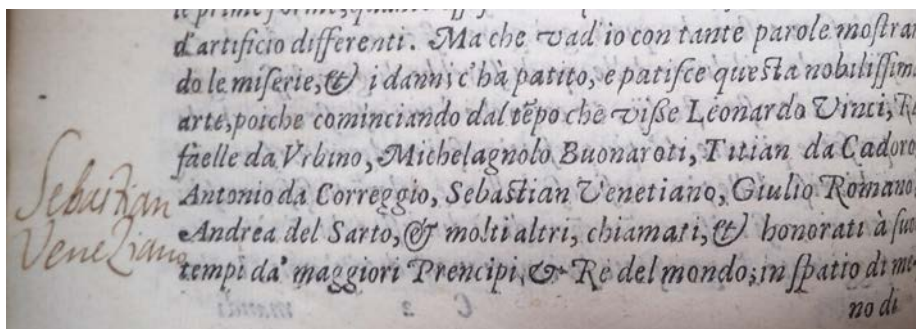 le prime forme, quanto
d'artificio differenti. Ma che vad' io con tante parole mostran
do le miserie, & i danni c'hà patito, e patisce questa nobilissima
arte, poiche cominciando dal tẽpo che visse Leonardo Vinci, Ra
faelle da Vrbino, Michelagnolo Buonaroti, Titian da Cadoro
Antonio da Correggio, Sebastian Venetiano, Giulio Romano
Andrea del Sarto, & molti altri, chiamati, & honorati à suoi
tempi da' maggiori Prencipi, & Re del mondo; in spatio di me-
no di
Sebastian
Veneziano